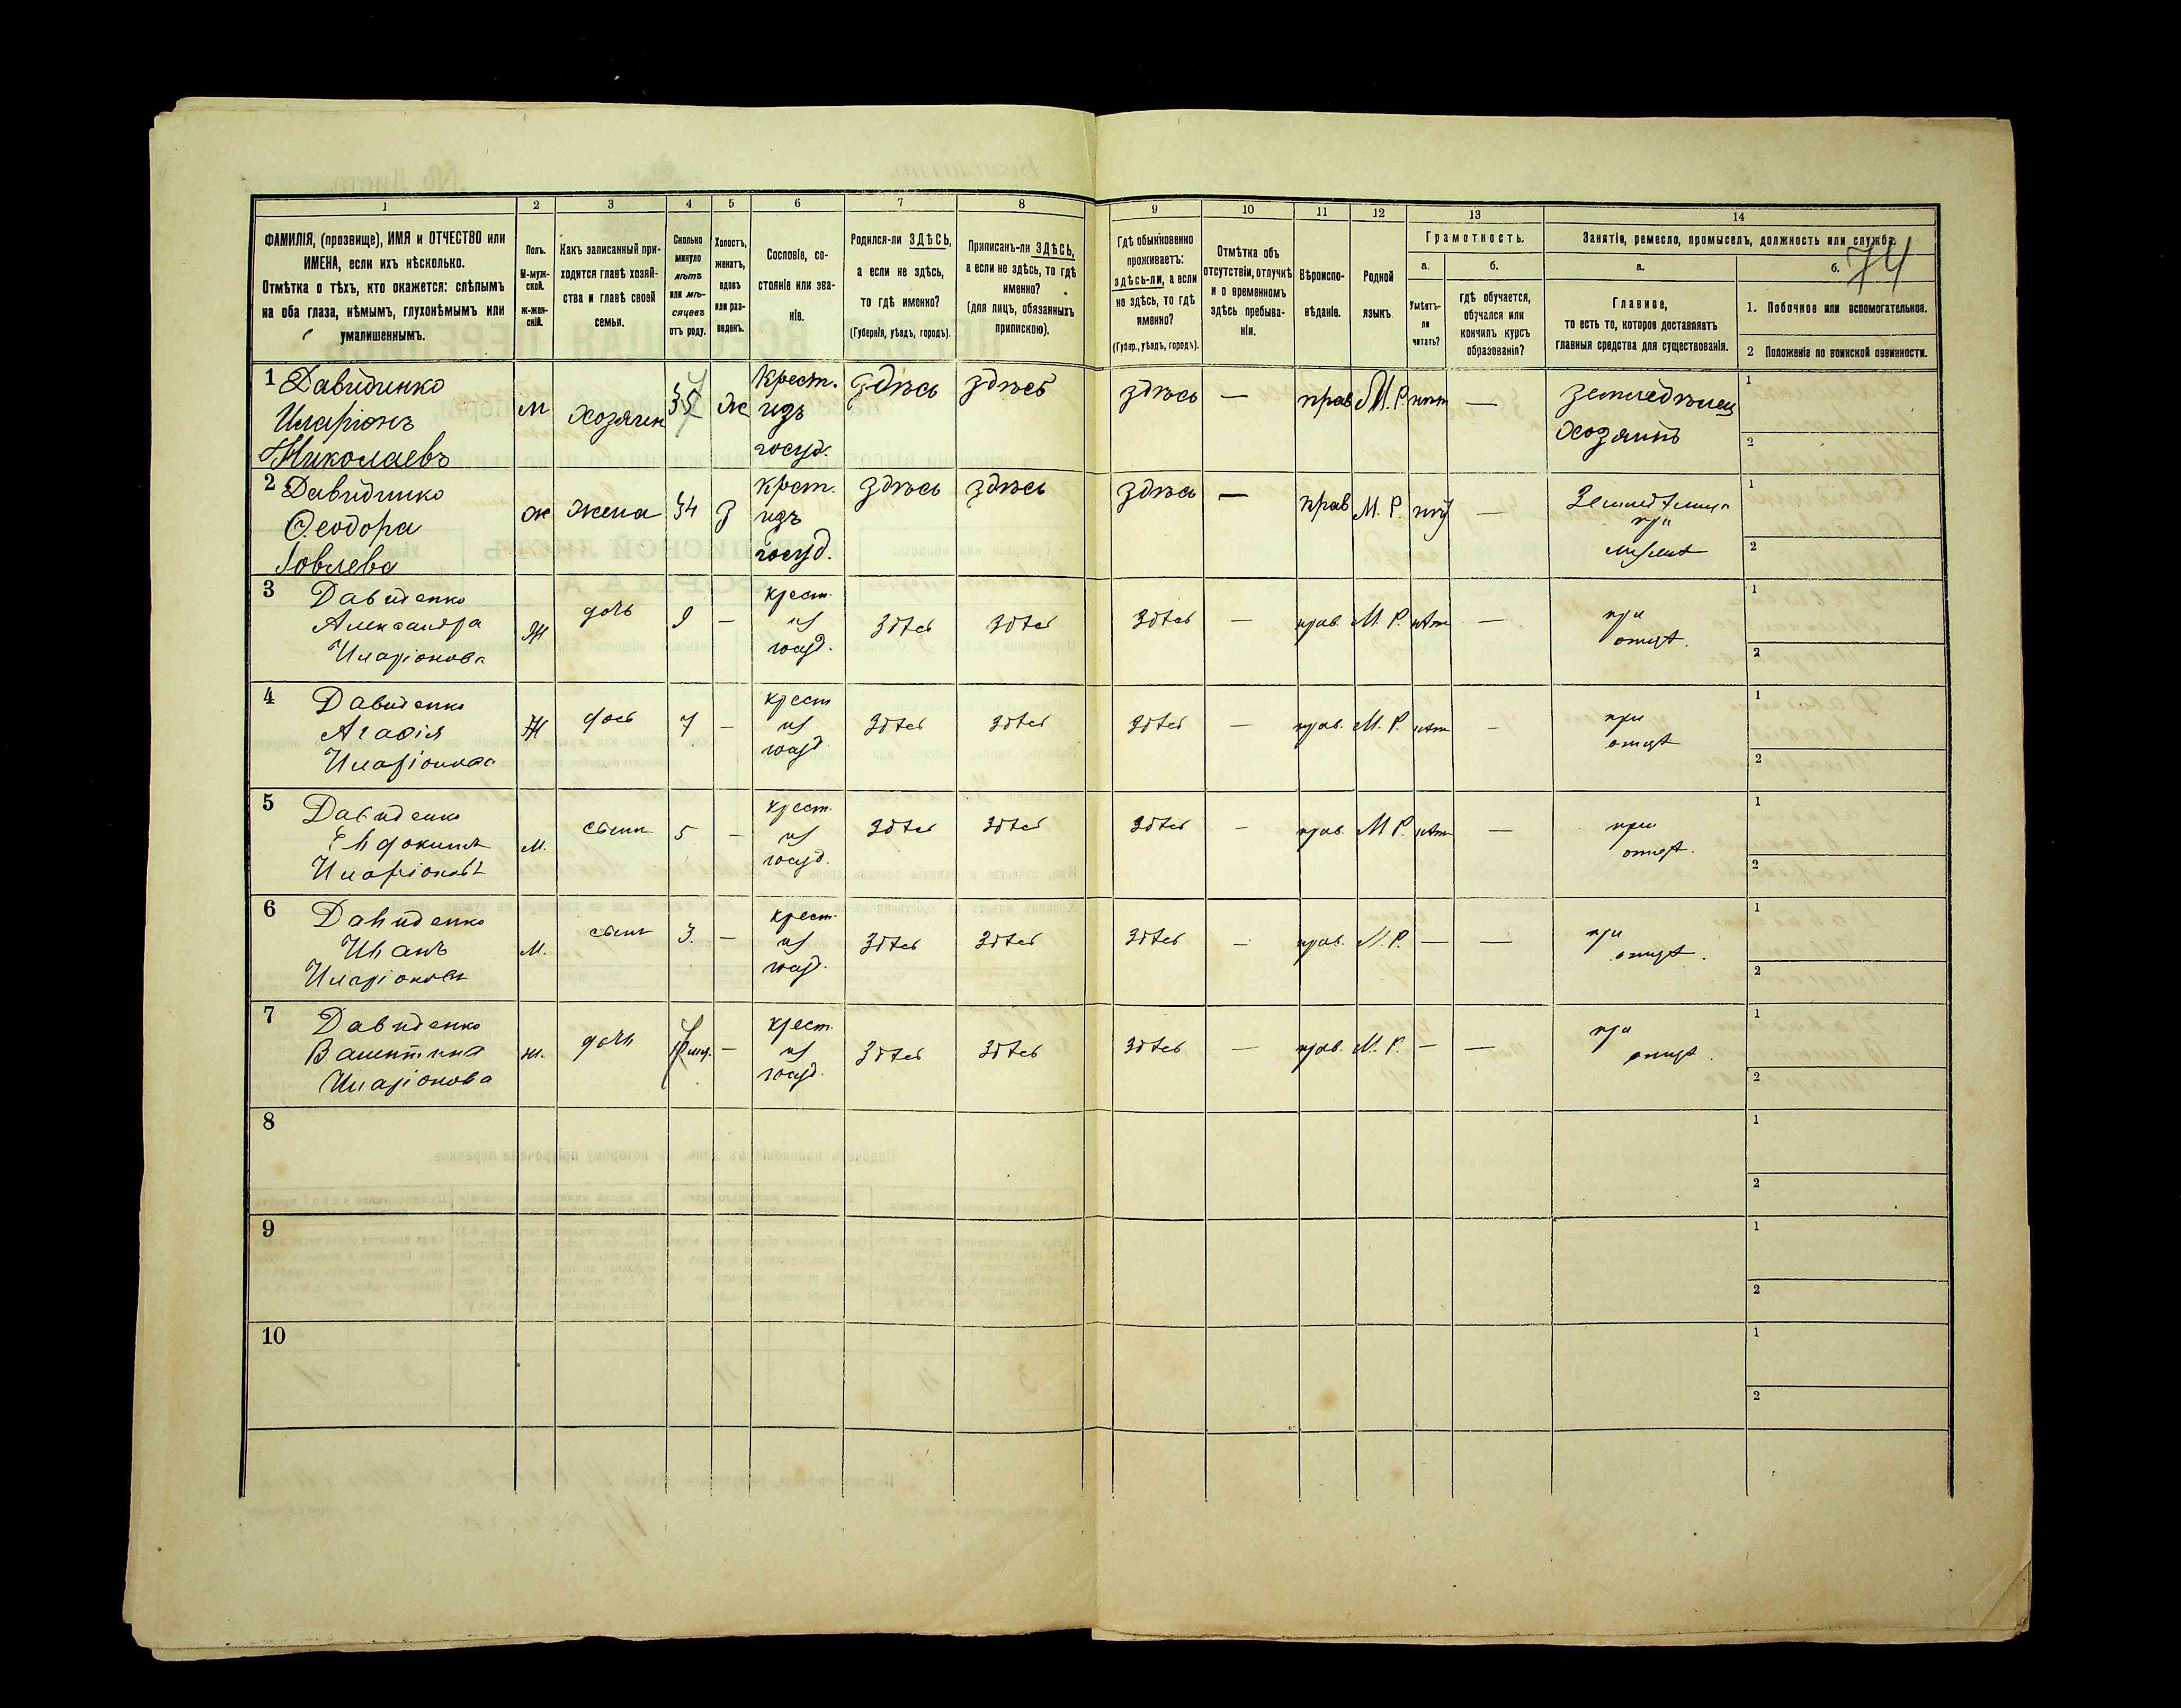 74
1 2 3 4 5 6 7 8 9 10 11 12 13 14
ФАМИЛІЯ, (прозвище), ИМЯ и ОТЧЕСТВО или
ИМЕНА, если ихъ нѣсколько.
Отмѣтка о тѣхъ, кто окажется: слѣпымъ
на оба глаза, нѣмымъ, глухонѣмымъ или
умалишеннымъ.
Полъ.
М-муж-
ской.
Ж-жен-
скій.
Какъ записанный при-
ходится главѣ хозяй-
ства и главѣ своей
семьи.
Сколько
минуло
лѣтъ
или мѣ-
сяцевъ
отъ роду.
Холостъ,
женатъ,
вдовъ
или раз-
веденъ.
Сословіе, со-
стояніе или зва-
ніе.
Родился-ли ЗДѢСЬ,
а если не здѣсь,
то гдѣ именно?
(Губернія, уѣздъ, городъ).
Приписанъ-ли ЗДѢСЬ,
а если не здѣсь, то гдѣ
именно?
(для лицъ, обязанныхъ
припискою).
Гдѣ обыкновенно
проживаетъ:
здѣсь-ли, а если
не здѣсь, то гдѣ
именно?
(Губер., уѣздъ, городъ).
Отмѣтка объ
отсутствіи, отлучкѣ
и о временномъ
здѣсь пребыва-
ніи.
Вѣроиспо-
вѣданіе.
Родной
языкъ.
Грамотность.
а.
Умѣетъ-
ли
читать?
б.
гдѣ обучается,
обучался или
кончилъ курсъ
образованія?
Занятіе, ремесло, промыселъ, должность или служба.
а.
Главное,
то есть то, которое доставляетъ
главныя средства для существованія.
б.
1. Побочное или вспомогательное.
2 Положеніе по воинской повинности.
1 Давиденко
Иларіонъ
Николаевъ
м
хозяин
35
ж
Крест.
изъ
госуд.
здѣсь
здѣсь
здѣсь
—
прав
М.Р.
нѣт
—
земледѣлец
хозяинъ
1
2
2 Давиденко
Ѳеодора
Іовлева
ж
жена
34
З
крест.
изъ
госуд.
здѣсь
здѣсь
здѣсь
—
прав
М. Р.
—
при
1
2
3 Давиденко
Александра
Иларіонова
Ж
дочь
9
—
крест.
из
госуд.
здѣсь
здѣсь
здѣсь
—
прав.
М. Р.
нѣт
—
при
отцѣ.
1
2
4 Давиденко
Агафія
Иларіонова
Ж
дочь
7
—
крест
из
госуд.
здѣсь
здѣсь
здѣсь
—
прав.
М. Р.
нѣт
—
при
отцѣ
1
2
5 Давиденко
Евдокимъ
Иларіоновъ
м.
сынъ
5
—
крест.
из
госуд.
здѣсь
здѣсь
здѣсь
—
прав.
М. Р.
нѣт
—
при
отцѣ.
1
2
6 Давиденко
Иванъ
Иларіоновъ
м.
сынъ
3.
—
крест.
из
госуд.
здѣсь
здѣсь
здѣсь
—
прав.
М. Р.
—
—
при
отцѣ.
1
2
7 Давиденко
Валентина
Иларіонова
ж.
дочь
—
крест.
из
госуд.
здѣсь
здѣсь
здѣсь
—
прав.
М. Р.
—
—
при
отцѣ.
1
2
8
1
2
9
1
2
10
1
2